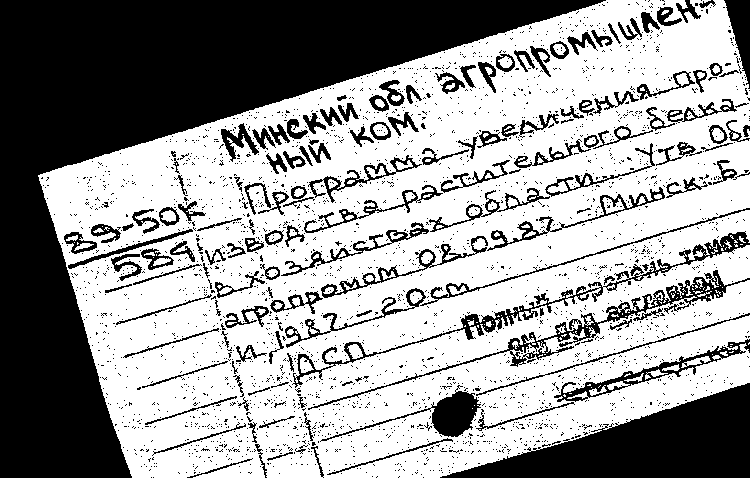 Минский обл. агропромышлен-
ный ком.
Программа увеличения про-
изводства растительного белка
в хозяйствах области. Утв. Обл
агропромом 08.09.87. - Минск: Б.
и., 1987. - 20 ст.
ДСП
89-50к
584
Полный перечень томов
см. под заглавием
См. след. ка